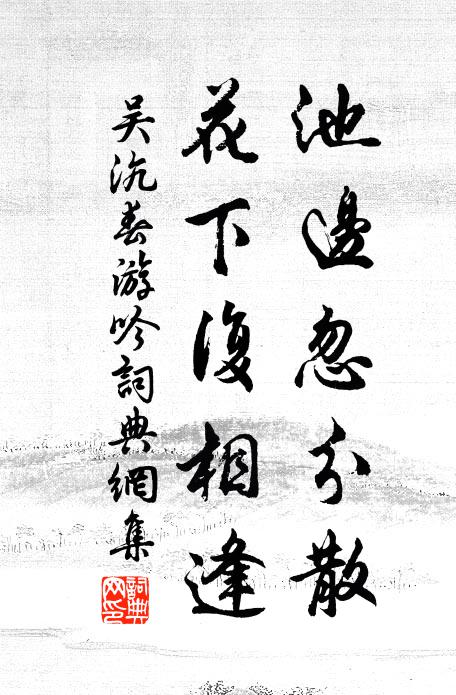 池邊忽分散
花下復相逢
吴沆春游吟詞典網集
詞典网印